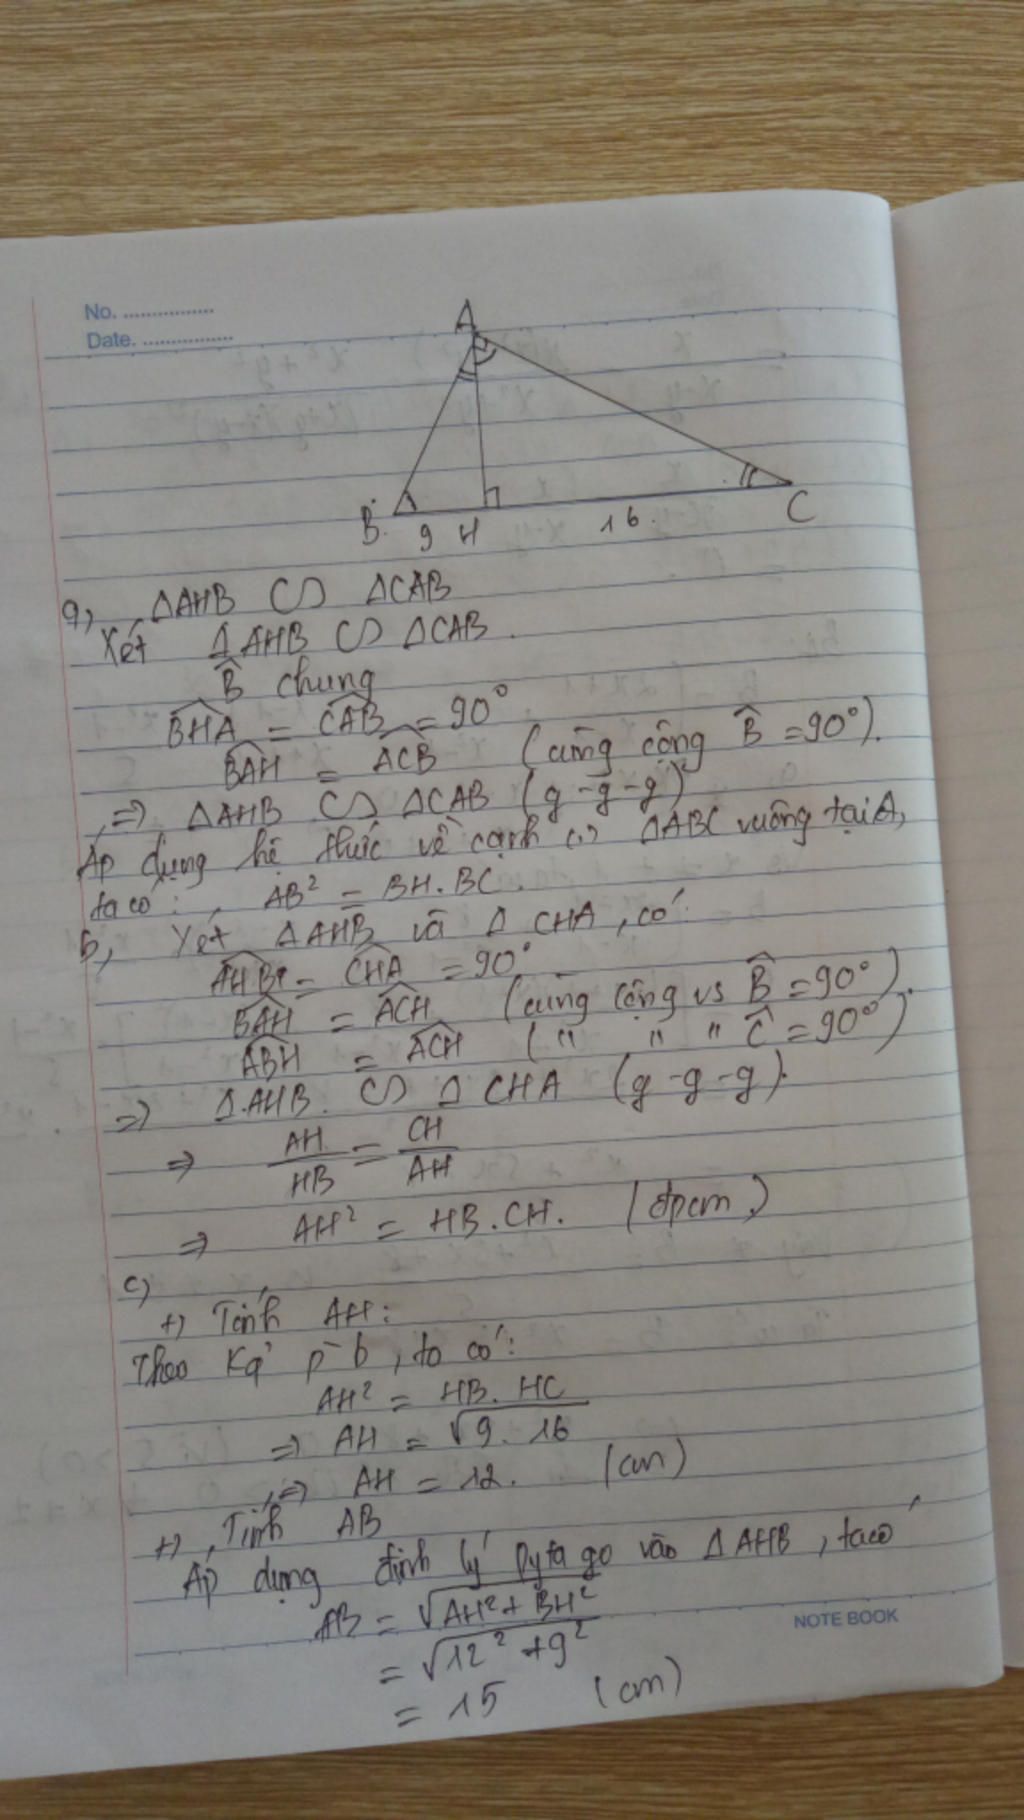 No. ................
Date. ................
A
B H C
9 16.
a, ΔAHB ∽ ΔCAB
Xét ΔAHB ∽ ΔCAB.
B̂ chung
B͡HA = C͡AB = 90°
B͡AH = A͡CB (cùng cộng B̂ = 90°).
=> ΔAHB ∽ ΔCAB (g-g-g)
Áp dụng hệ thức về cạnh ΔABC vuông tại A,
ta có: AB² = BH.BC.
b, Xét ΔAHB và Δ CHA, có:
A͡HB = C͡HA = 90°
B͡AH = A͡CH (cùng cộng vs B̂ = 90°).
A͡BH = A͡CH (" " " Ĉ = 90°)
=> Δ.AHB. ∽ Δ CHA (g-g-g).
=> AH/HB = CH/AH
=> AH² = HB.CH. (đpcm)
c)
+) Tính AH:
Theo p-b, ta có:
AH² = HB.HC
=> AH = √9.16
=> AH = 12. (cm)
+) Tính AB
Áp dụng định lý pytago vào ΔAHB, ta có
AB = √AH²+BH²
= √12²+9²
= 15 (cm)
NOTE BOOK